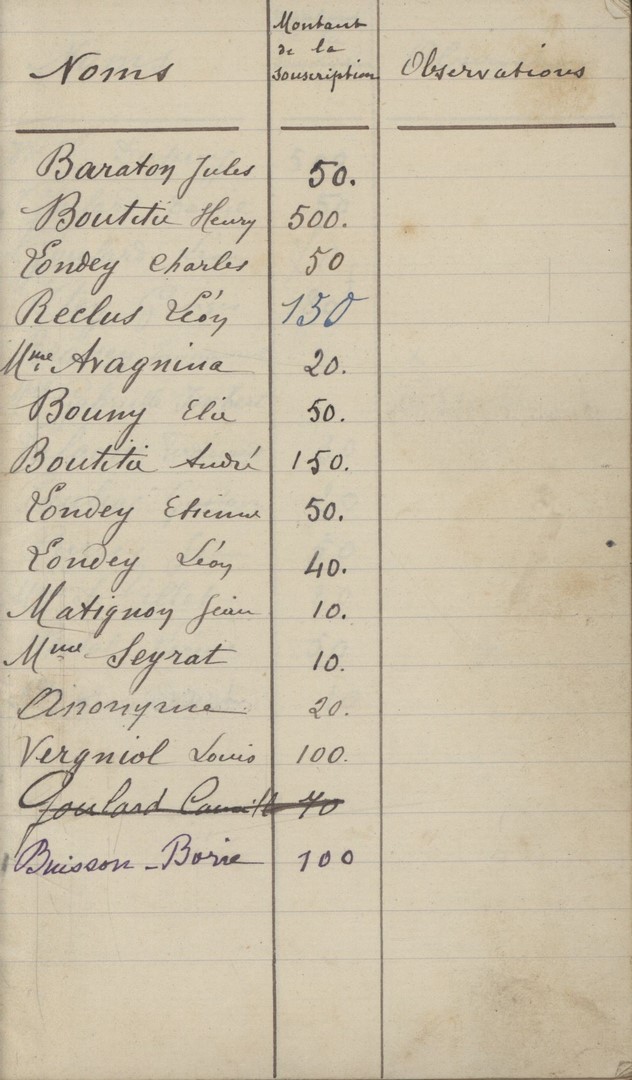 Noms
Montant
de la
souscription
Observations
Baraton Jules 50.
Boutitie Henry 500.
Londey Charles 50
Reclus Léon 150
Mme Aragnina 20.
Bouny Elie 50.
Boutitie André 150.
Londey Etienne 50.
Londey Léon 40.
Matignon Jean 10.
Mme Seyrat 10.
Anonyme 20.
Vergniol Louis 100.
Goulard Camille 70
Buisson-Borie 100